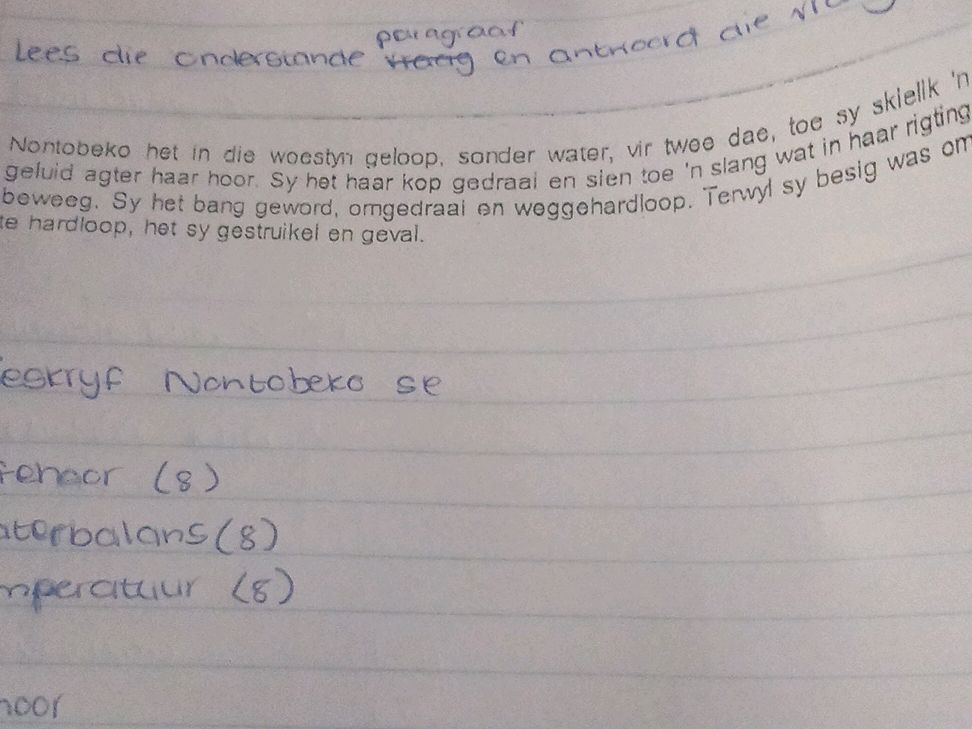 paragraaf
Lees die onderstande en antwoord die
Nontobeko het in die woestyn geloop, sonder water, vir twee dae, toe sy skielik 'n
geluid agter haar hoor. Sy het haar kop gedraai en sien toe 'n slang wat in haar rigting
beweeg. Sy het bang geword, omgedraai en weggehardloop. Terwyl sy besig was om
te hardloop, het sy gestruikel en geval.
eskryf Nontobeko se
ehoor (8)
aterbalans (8)
mperatuur (8)
hoor